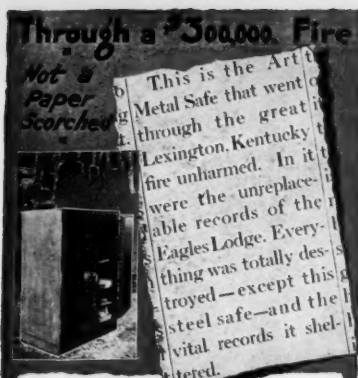 Through a $300,000. Fire
Not a
Paper
Scorched
This is the Art
Metal Safe that went
through the great
Lexington, Kentucky
fire unharmed. In it
were the unreplace-
able records of the
Eagles Lodge. Every-
thing was totally des-
troyed—except this
steel safe—and the
vital records it shel-
tered.